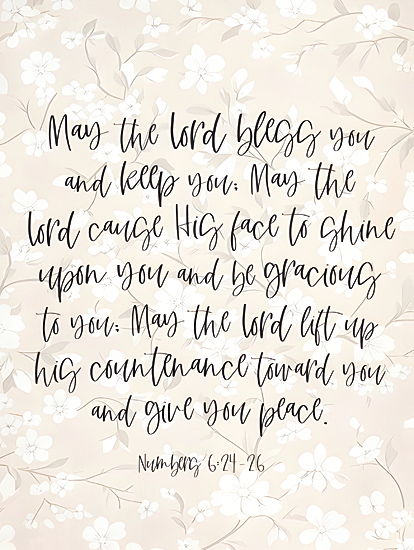 May the lord bless you
and keep you; May the
lord cause His face to shine
upon you and be gracious
to you; May the lord lift up
his countenance toward you
and give you peace.
Numbers 6:24-26